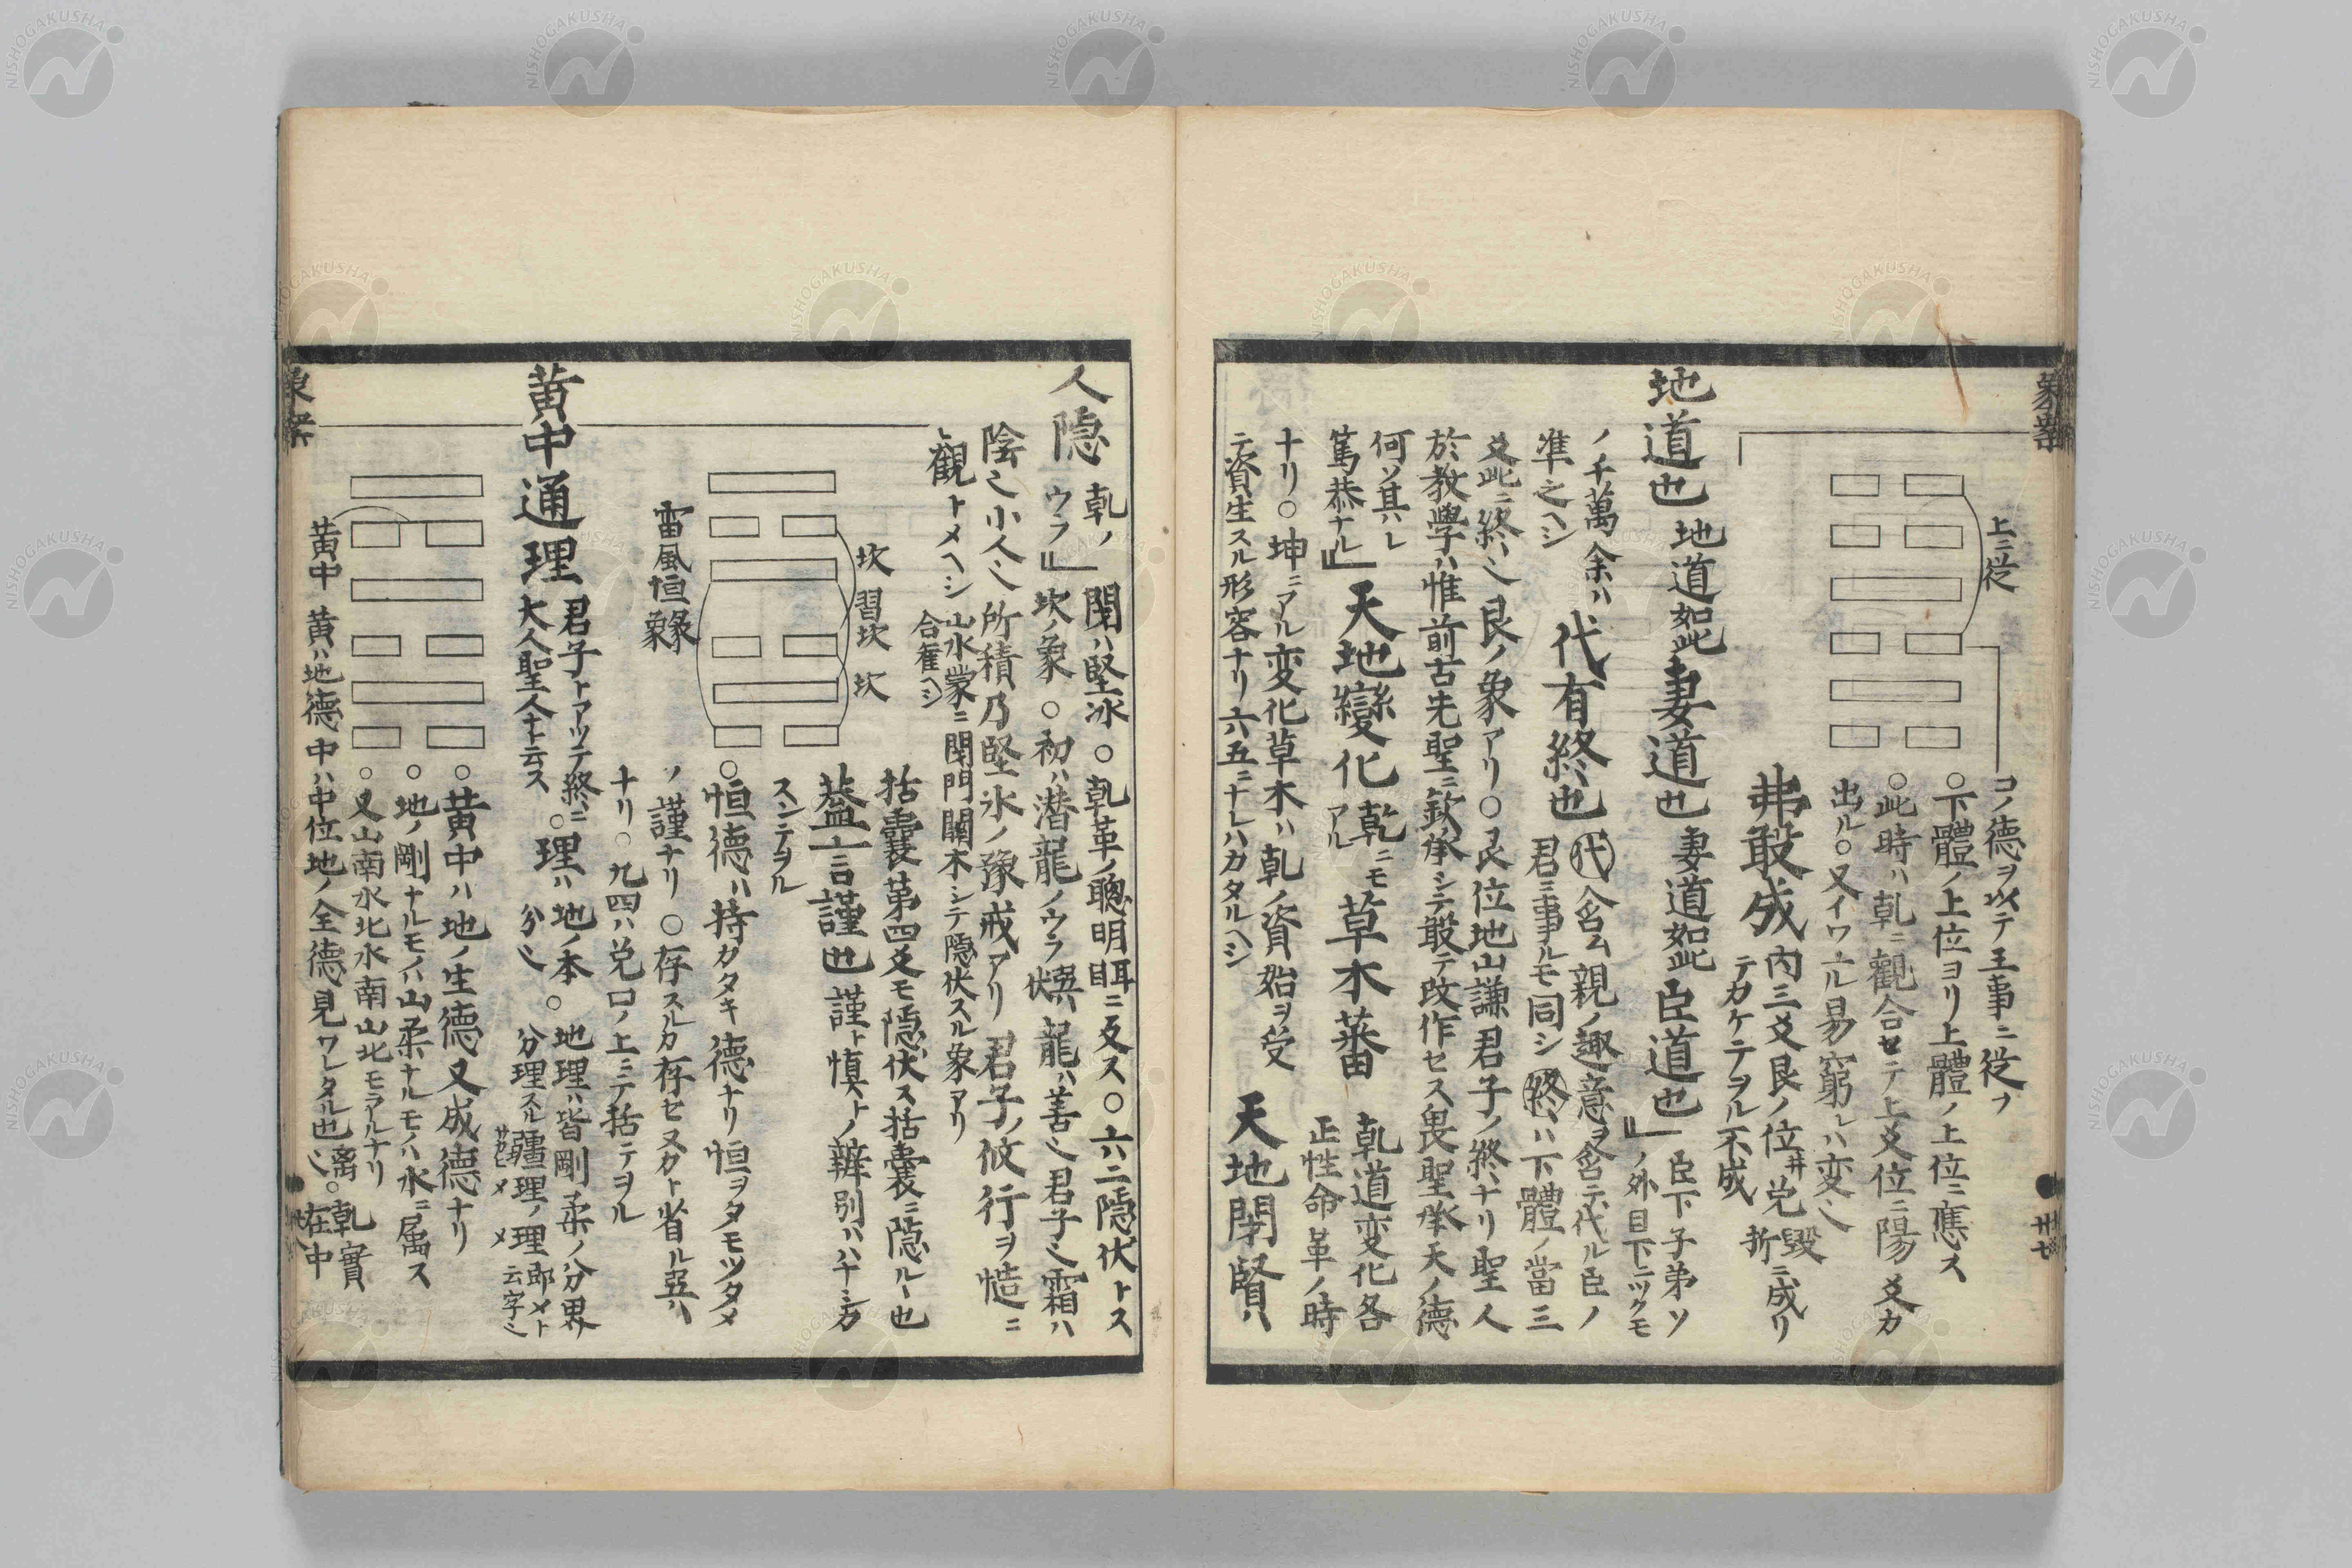 上ニ從
コノ德ヲ以テ王事ニ從フ
○下體ノ上位ヨリ上體ノ上位ニ應ス
○此時ハ乾ニ觀合セテ上爻位ニ陽爻カ
出ル○又イワユル易窮レハ変ズ
弗敢成 内三爻艮ノ位井兌毀折ニ成リ
テカケテヲル不成
地道也 地道如此 妻道也 妻道如此 臣道也 』臣下子弟ソ
ノ外目下ニツクモ
ノ千萬余ハ
準之ヘシ
代有終也 代 含ム親ノ趣意ヲ含テ代ル臣ノ
君ニ事ルモ同シ 終ハ下體ノ當三
爻此ニ終ハル艮ノ象アリ○艮位地山謙君子ノ終ナリ聖人
於教學ハ惟前古先聖ニ欽承シテ敢テ改作セス畏聖承天ノ德
何ソ其ハレ
篤恭ナル』天地變化 乾ニモ
アル 草木蕃 乾道変化各
正性命革ノ時
ナリ○坤ニアル変化草木ハ乾ノ資始ヲ受
テ資生スル形容ナリ六五ニナレハカタルヘシ 天地閉賢ハ
象考
卅七
人隱 乾ノ
ウラ』閉ハ堅冰○乾革ノ聰明耳目ニ反ス○六二隱伏トス
坎ノ象○初ハ潜龍ノウラ 龍ハ善ニ君子ニ霜ハ
陰ニ小人ニ所積乃堅氷ノ豫戒アリ君子ノ攸行ヲ造ニ
觀トメヘシ 山水蒙ニ閉門關木シテ隱伏スル象アリ
合セ隺ヘシ
括囊第四爻モ隱伏ス括囊ニ隱ルー也
坎 習坎 坎
蓋言謹也 謹ト慎トノ辨別ハハナシカ
スンテヲル
○恒德ハ持カタキ德ナリ恒ヲタモツタメ
雷風恒彖象
ノ謹ナリ○存スルカ存セヌカト省ル巫ハ
ナリ○九四ハ兌口ノ上ニテ括テヲル
黄中通理 君子トアツテ終ニ
大人聖人ナト云ス ○理ハ地ノ本
分ニ ○地理ハ皆剛柔ノ分界
分理スル疆理ノ理郎メト
サカヒメ メ云字ニ
○黄中ハ地ノ生德又成德ナリ
○地ノ剛ナルモノハ山柔ナルモノハ水ニ属ス
○又山南水北水南山北モアルナリ
黄中 黄ハ地德中ハ中位地ノ全德見ワレタル也 離ニ○乾實在中